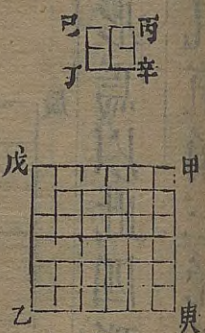 己 丙
丁 辛
戊 甲
乙 庚